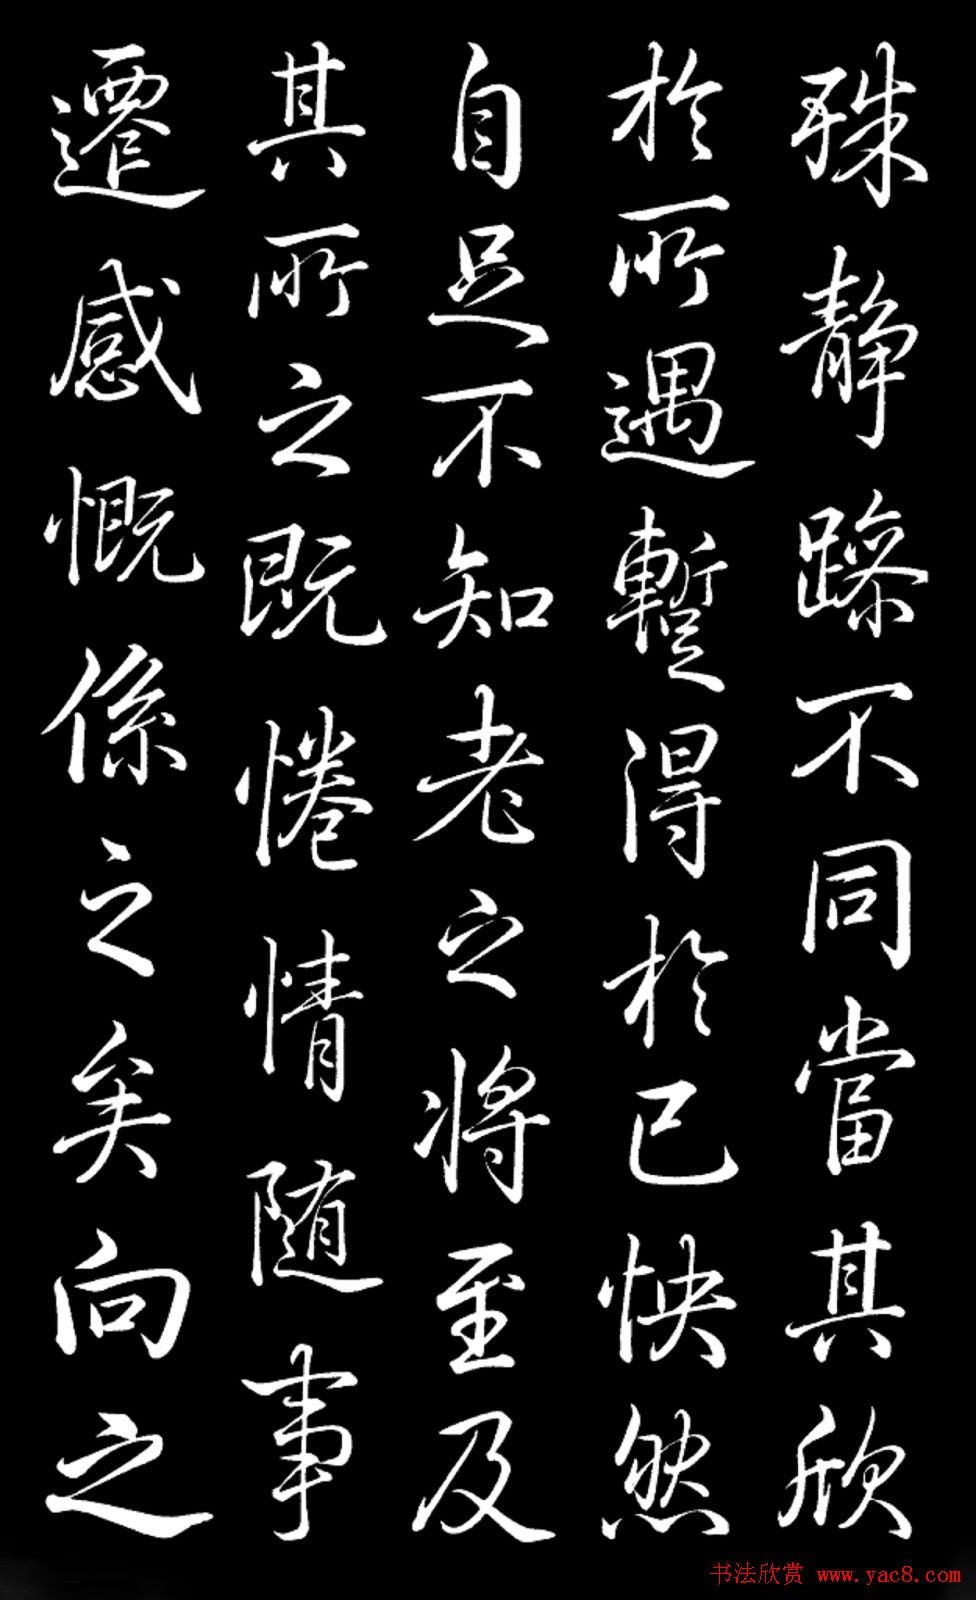 殊静躁不同當其欣
於所遇暫得於己怏然
自足不知老之将至及
其所之既惓情随事
遷感慨係之矣向之
书法欣赏 www.yac8.com